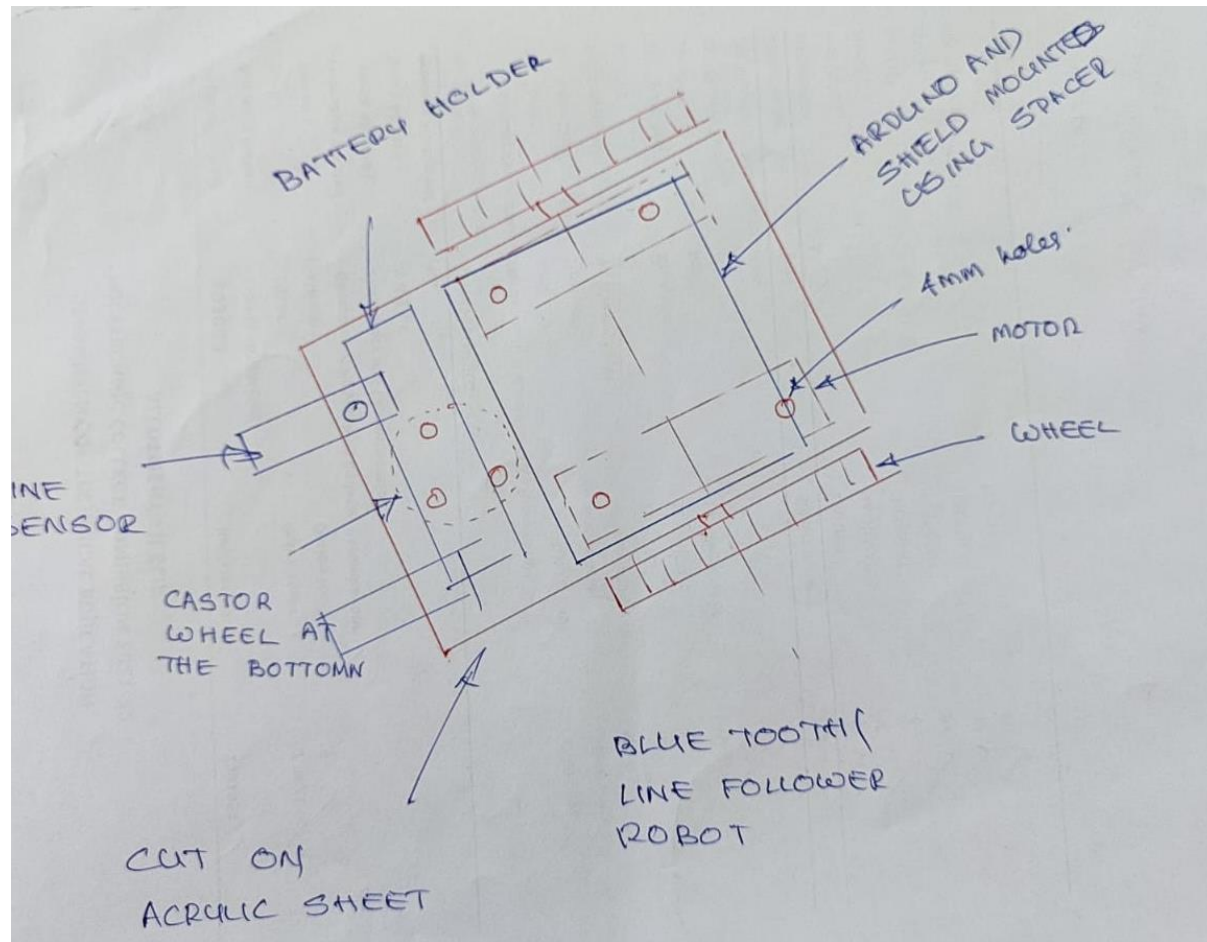 BATTERY HOLDER
ARDUINO AND
SHIELD MOUNTED
USING SPACER
4mm holes.
MOTOR
WHEEL
INE
SENSOR
CASTOR
WHEEL AT
THE BOTTOMN
BLUE TOOTH/
LINE FOLLOWER
ROBOT
CUT ON
ACRYLIC SHEET